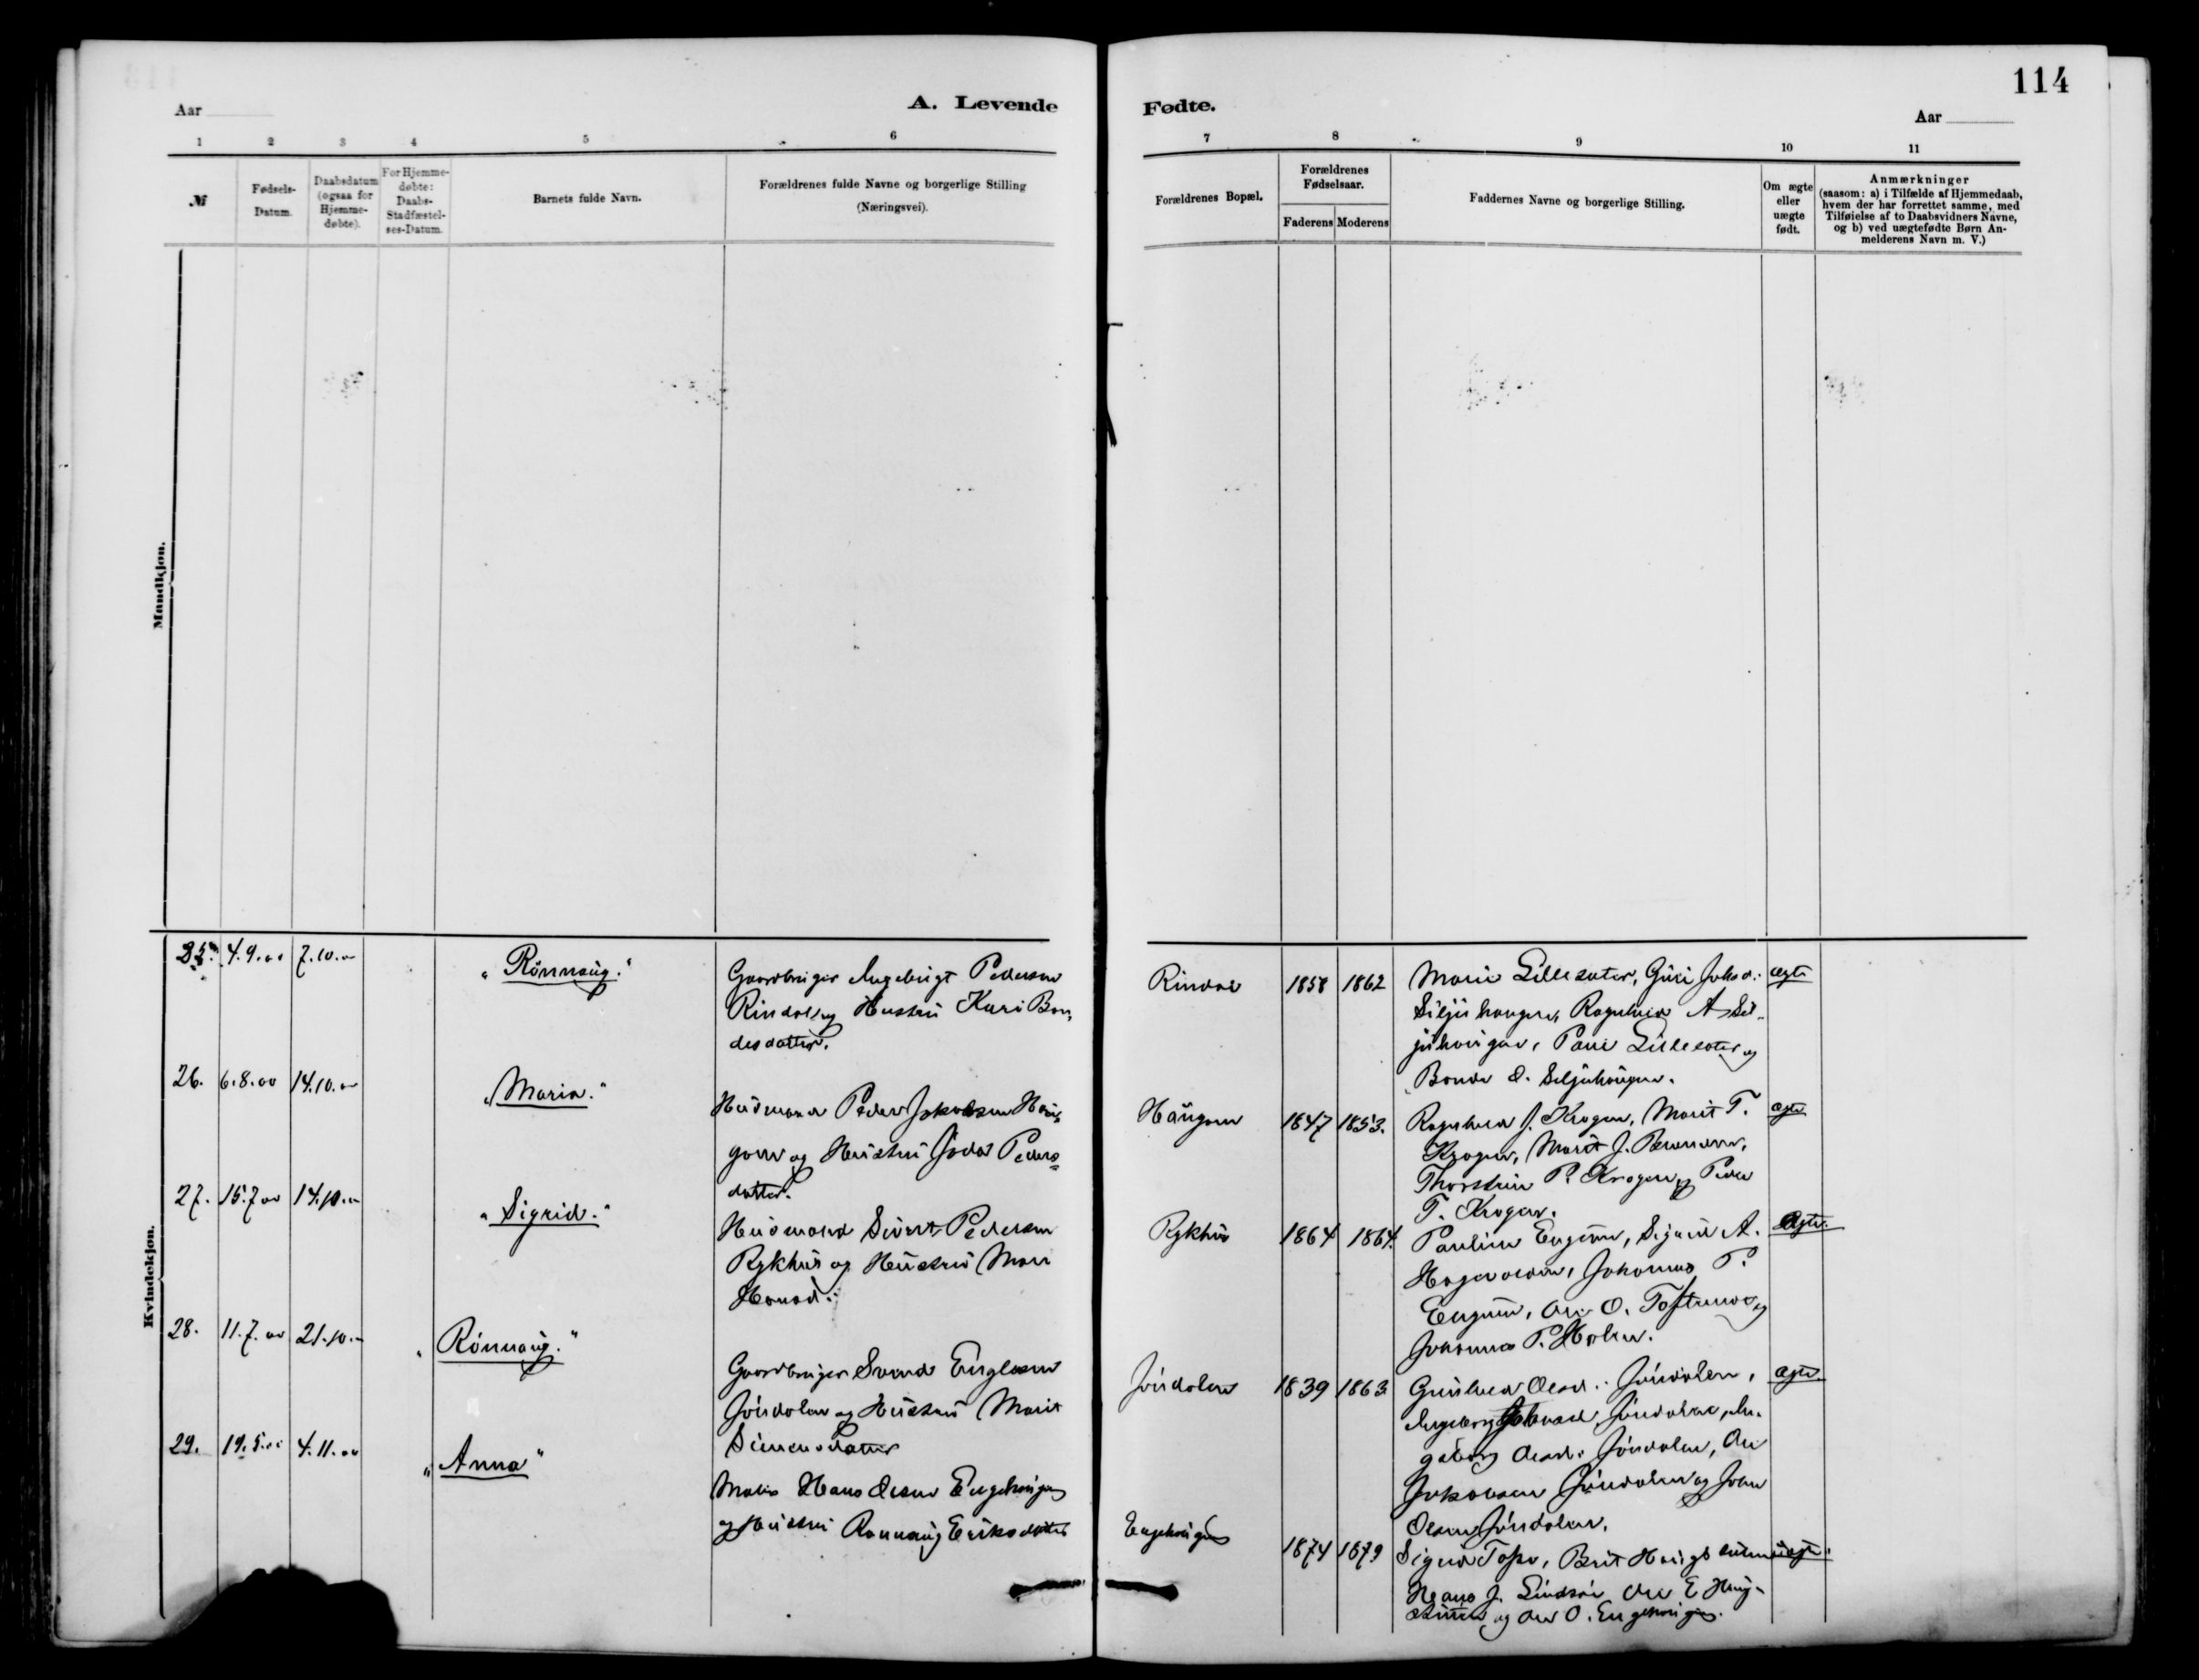 114
Aar
A. Levende
Fødte.
Aar
1 2 3 4 5 6 7 8 9 10 11
№
Fødsels-
Datum.
Daabsdatum
(ogsaa for
Hjemme-
døbte).
For Hjemme-
døbte:
Daabs-
Stadfæstel-
ses-Datum.
Barnets fulde Navn.
Forældrenes fulde Navne og borgerlige Stilling
(Næringsvei).
Forældrenes Bopæl.
Forældrenes
Fødselsaar.
Faderens Moderens
Faddernes Navne og borgerlige Stilling.
Om ægte
eller
uægte
født.
Anmærkninger
(saasom: a) i Tilfælde af Hjemmedaab,
hvem der har forrettet samme, med
Tilføielse af to Daabsvidners Navne,
og b) ved uægtefødte Børn An-
melderens Navn m. V.)
Mandkjøn.
Kvindekjøn.
25. 4.9.00 7.10.00
"Rönnaug."
Gaardbruger Ingebrigt Pedersen
Rindal og Hustru Kari Bon-
desdatter.
Rindal
1858 1862
Marie Lillesæter, Guri Johsd:
Siljuhaugen, Ragnhild A Sil-
juhaugen, Paul Lillesæter og
Bonde O. Siljuhaugen.
ægte
26. 6.8.00 14.10.00
"Maria."
Husmand Peder Jakobsen Hau-
gen og Hustru Peders-
datter.
Haugen
1847 1853.
Ragnhild J. Krogen, Marit T.
Krogen, Marit J.
Thorstein P. Krogen og Peder
T. Krogen.
ægte
27. 15.7.00 14.10.00
"Sigrid."
Husmand Sivert Pedersen
Rykhus og Hustru Mari
Hansd.:
Rykhus
1864 1864.
Pauline Engum, Sigrid A.
Johannes P.
Engum, O. og
Johannes P. Holen.
ægte.
28. 11.7.00 21.10.00
"Rönnaug."
Gaardbruger Svend Engelsen
Jöndalen og Hustru Marit
Simensdatter
Jöndalen
1839 1863
Gunhild Olesd.: Jöndalen,
Ingeborg Jöndalen, In-
geborg Olesd: Jöndalen, Ole
Jakobsen Jöndalen og John
Olsen Jöndalen.
ægte.
29. 19.5.00 4.11.00
"Anna"
Maler Hans Olsen Engehaugen
og Hustru Rannaug Eriksdatter
Engehaugen
1874 1879
Sigrid Tofte, Brit
Hans J. Ole E Haug-
og Ole O. Engehaugen.
ægte.